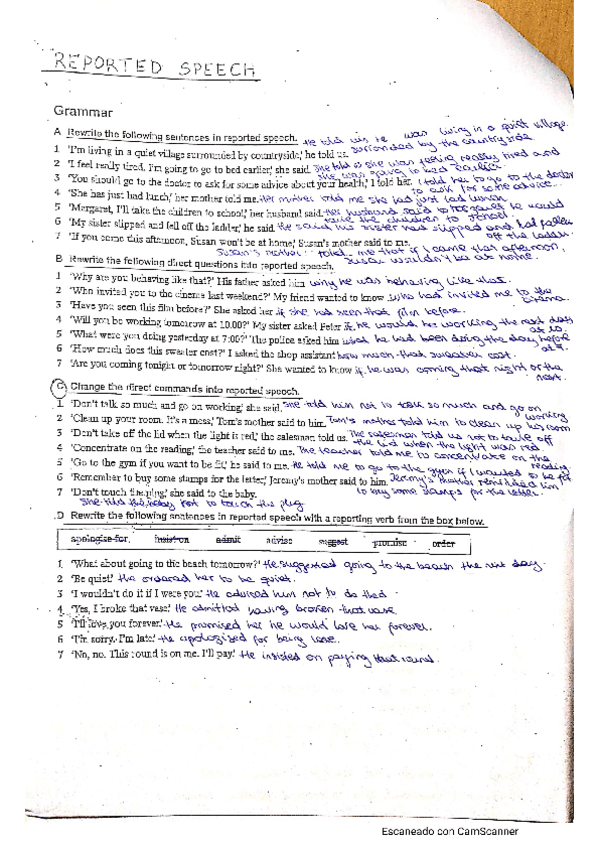 REPORTED SPEECH
Grammar
A Rewrite the following sentences in reported speech. He told us he was living in a quiet village
1 'I'm living in a quiet village surrounded by countryside,' he told us. surrounded by the countryside
2 'I feel really tired. I'm going to go to bed earlier,' she said. She told us she was feeling really tired and she was going to bed earlier.
3 'You should go to the doctor to ask for some advice about your health,' I told her. I told her to go to the doctor to ask for some advice...
4 'She has just had lunch,' her mother told me. Her mother told me she had just had lunch
5 'Margaret, I'll take the children to school,' her husband said. Her husband said to Margaret he would take the children to school.
6 'My sister slipped and fell off the ladder,' he said. He said his sister had slipped and had fallen off the ladder.
7 'If you come this afternoon, Susan won't be at home,' Susan's mother told me.
Susan's mother told me that if I came that afternoon, Susan wouldn't be at home.
B Rewrite the following direct questions into reported speech.
1 'Why are you behaving like that?' His father asked him why he was behaving like that.
2 'Who invited you to the cinema last weekend?' My friend wanted to know who had invited me to the cinema.
3 'Have you seen this film before?' She asked her if she had seen that film before.
4 'Will you be working tomorrow at 10.00?' My sister asked Peter if he would be working the next day at 10.
5 'What were you doing yesterday at 7:00?' The police asked him what he had been doing the day before at 7.
6 'How much does this sweater cost?' I asked the shop assistant how much that sweater cost.
7 'Are you coming tonight or tomorrow night?' She wanted to know if he was coming that night or the next.
C Change the direct commands into reported speech.
1 'Don't talk so much and go on working,' she said. She told him not to talk so much and go on working
2 'Clean up your room. It's a mess,' Tom's mother said to him. Tom's mother told him to clean up his room
3 'Don't take off the lid when the light is red,' the salesman told us. The salesman told us not to take off the lid when the light was red.
4 'Concentrate on the reading,' the teacher said to me. The teacher told me to concentrate on the reading
5 'Go to the gym if you want to be fit,' he said to me. He told me to go to the gym if I wanted to be fit
6 'Remember to buy some stamps for the letter,' Jeremy's mother said to him. Jeremy's mother reminded him to buy some stamps for the letter.
7 'Don't touch the plug,' she said to the baby.
She told the baby not to touch the plug
D Rewrite the following sentences in reported speech with a reporting verb from the box below.
apologise for insist on admit advise suggest promise order
1 'What about going to the beach tomorrow?' He suggested going to the beach the next day.
2 'Be quiet!' He ordered her to be quiet.
3 'I wouldn't do it if I were you.' He advised him not to do that
4 'Yes, I broke that vase.' He admitted having broken that vase
5 'I'll love you forever.' He promised her he would love her forever.
6 'I'm sorry. I'm late.' He apologized for being late.
7 'No, no. This round is on me. I'll pay.' He insisted on paying that round.
Escaneado con CamScanner